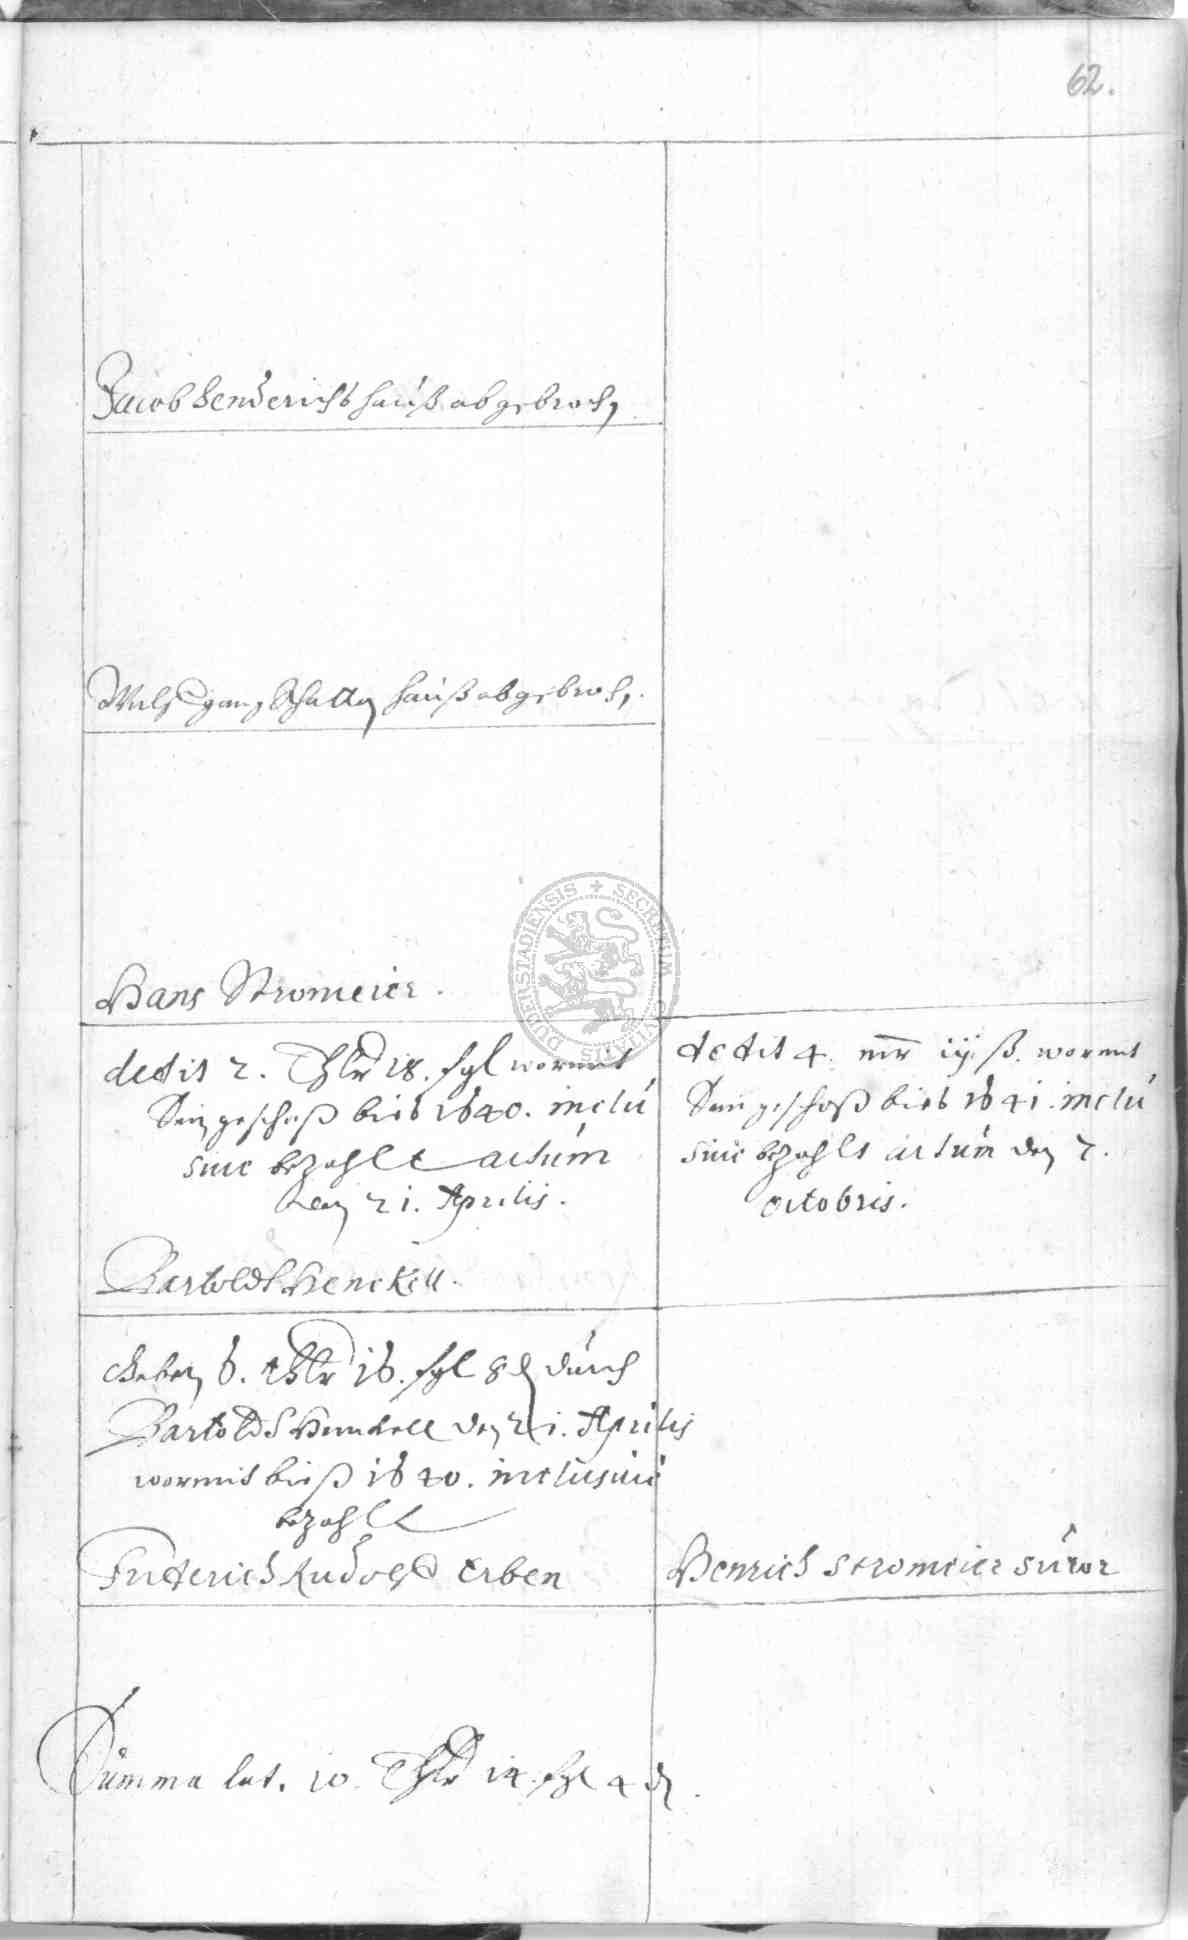 62.
Jacob Henderichs hauß abgebroch,
Wulfgang hauß abgebroch,
Hans Stromeier.
dedit 2. Thlr 18. sgl wormit
Sein geschoß bieß 1640. inclu
siue bezahlt actum
den 21. Aprilis.
dedit 4. mr iij ß. wormit
Sein geschoß bieß 1641. inclu
siue bezahlt actum den 7.
octobris.
Bartoldt Henckell.
Geben 6. thlr 16. sgl 8 d durch
Bartoldt Henckell den 21. Aprilis
wormit bieß 1640. inclusiue
bezahlt
Friderich Rudolph Erben
Henrich Stromeier
Summa lat. 10. Thlr 14. sgl 4 d.
SECRETUM CIVITATIS DUDERSTADIENSIS